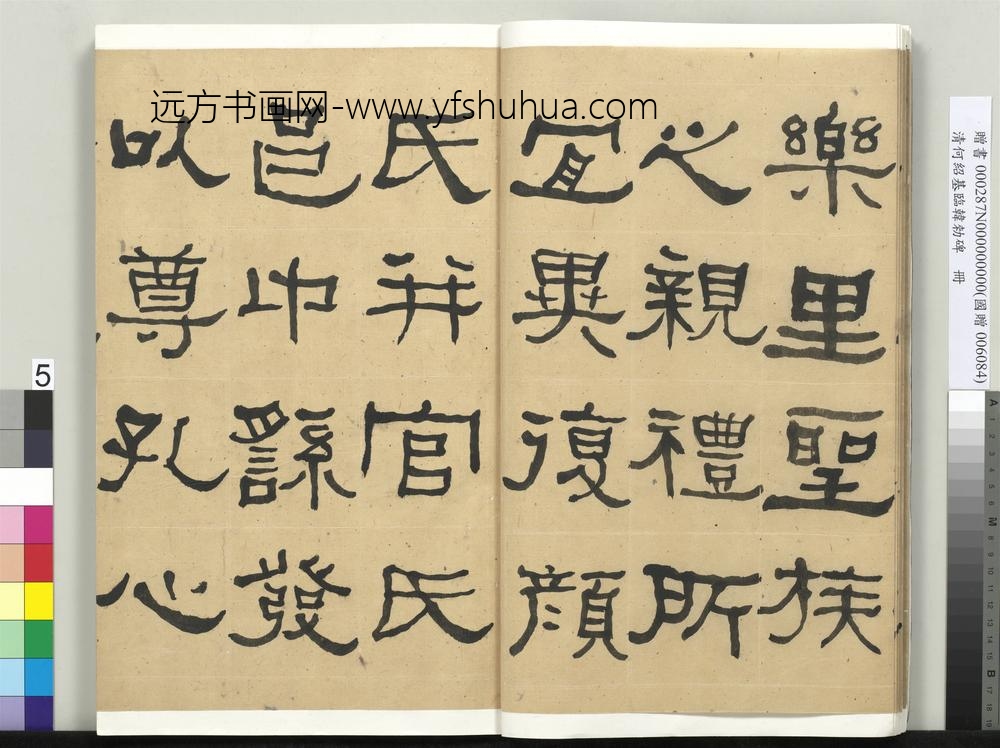 远方书画网-www.yfshuhua.com
樂里聖族
之親禮所
宜異復顏
氏并官氏
邑中繇發
以尊孔心
贈書 000287N000000000(國贈 006084)
清何紹基臨韓勑碑 冊
5